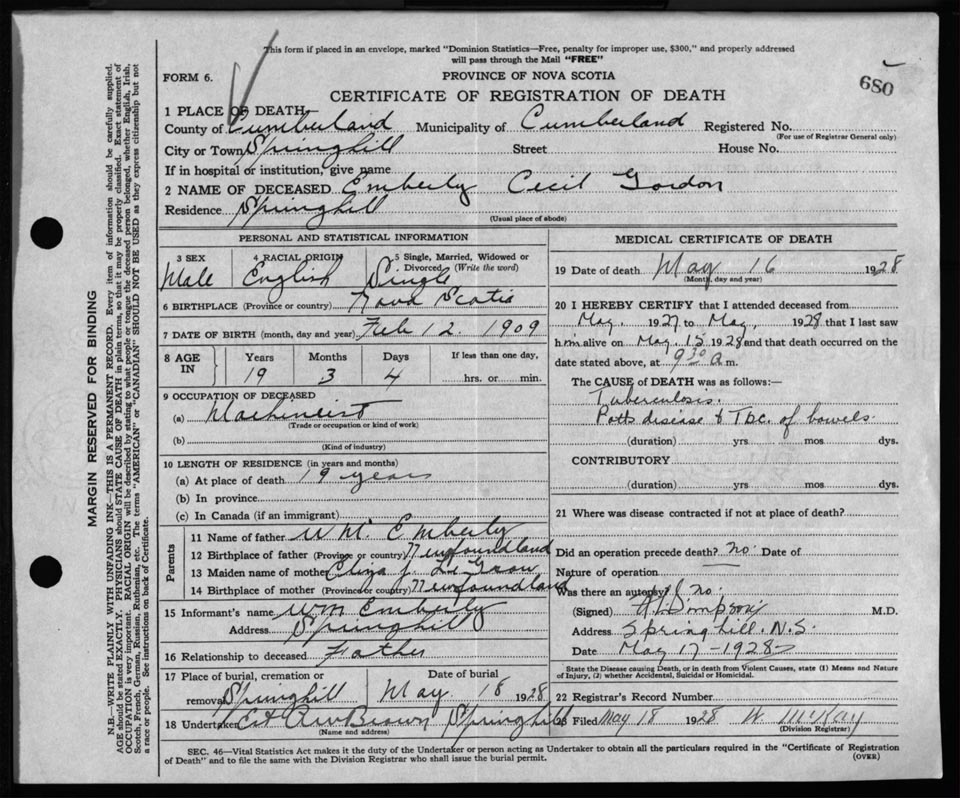 This form if placed in an envelope, marked "Dominion Statistics—Free, penalty for improper use, $300," and properly addressed
will pass through the Mail "FREE"
FORM 6.
PROVINCE OF NOVA SCOTIA
680
CERTIFICATE OF REGISTRATION OF DEATH
1 PLACE OF DEATH—
County of Cumberland Municipality of Cumberland Registered No.
(For use of Registrar General only)
City or Town Springhill Street House No.
If in hospital or institution, give name
2 NAME OF DECEASED Emberly Cecil Gordon
Residence Springhill
(Usual place of abode)
MARGIN RESERVED FOR BINDING
N.B.—WRITE PLAINLY WITH UNFADING INK—THIS IS A PERMANENT RECORD. Every item of information should be carefully supplied.
AGE should be stated EXACTLY. PHYSICIANS should STATE CAUSE OF DEATH in plain terms, so that it may be properly classified. Exact statement of
OCCUPATION is very important. RACIAL ORIGIN will be described by stating to what people or tongue the deceased person belonged, whether English, Irish,
Scotch, French, German, Russian, Ruthenian, etc. The terms "AMERICAN" or "CANADIAN" SHOULD NOT BE USED as they express citizenship but not
a race or people. See instructions on back of Certificate.
PERSONAL AND STATISTICAL INFORMATION
3 SEX 4 RACIAL ORIGIN 5 Single, Married, Widowed or
Divorced (Write the word)
Male English Single
6 BIRTHPLACE (Province or country) Nova Scotia
7 DATE OF BIRTH (month, day and year) Feb 12 1909
8 AGE IN Years Months Days If less than one day,
19 3 4 hrs. or min.
9 OCCUPATION OF DECEASED
(a) Machineist
(Trade or occupation or kind of work)
(b)
(Kind of industry)
10 LENGTH OF RESIDENCE (in years and months)
(a) At place of death 19 years
(b) In province
(c) In Canada (if an immigrant)
Parents
11 Name of father Wm. Emberly
12 Birthplace of father (Province or country) Newfoundland
13 Maiden name of mother Eliza J.
14 Birthplace of mother (Province or country) Newfoundland
15 Informant's name Wm Emberly
Address Springhill
16 Relationship to deceased Father
17 Place of burial, cremation or Date of burial
removal Springhill May 18 1928
18 Undertaker Brown Springhill
(Name and address)
MEDICAL CERTIFICATE OF DEATH
19 Date of death May 16 1928
(Month, day and year)
20 I HEREBY CERTIFY that I attended deceased from
May. 1927 to May, 1928 that I last saw
him alive on May 15 1928 and that death occurred on the
date stated above, at 9 30 a m.
The CAUSE of DEATH was as follows:—
Tuberculosis.
Potts disease & Tbc. of bowels.
(duration) yrs. mos. dys.
CONTRIBUTORY
(duration) yrs. mos. dys.
21 Where was disease contracted if not at place of death?
Did an operation precede death? no. Date of
Nature of operation
Was there an autopsy? no.
(Signed) Simpson M.D.
Address Springhill. N.S.
Date May 17–1928
State the Disease causing Death, or in death from Violent Causes, state (1) Means and Nature
of Injury, (2) whether Accidental, Suicidal or Homicidal.
22 Registrar's Record Number
23 Filed May 18 1928 W. McKay
(Division Registrar)
SEC. 46—Vital Statistics Act makes it the duty of the Undertaker or person acting as Undertaker to obtain all the particulars required in the "Certificate of Registration
of Death" and to file the same with the Division Registrar who shall issue the burial permit.
(OVER)